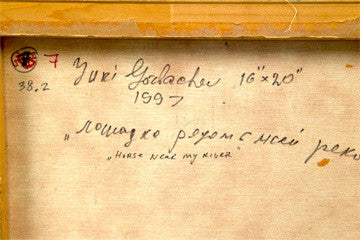 7 Yuri Gorbachev 16"x20"
38.2
1997
„лошадка рядом с моей реко
„Horse near my river"